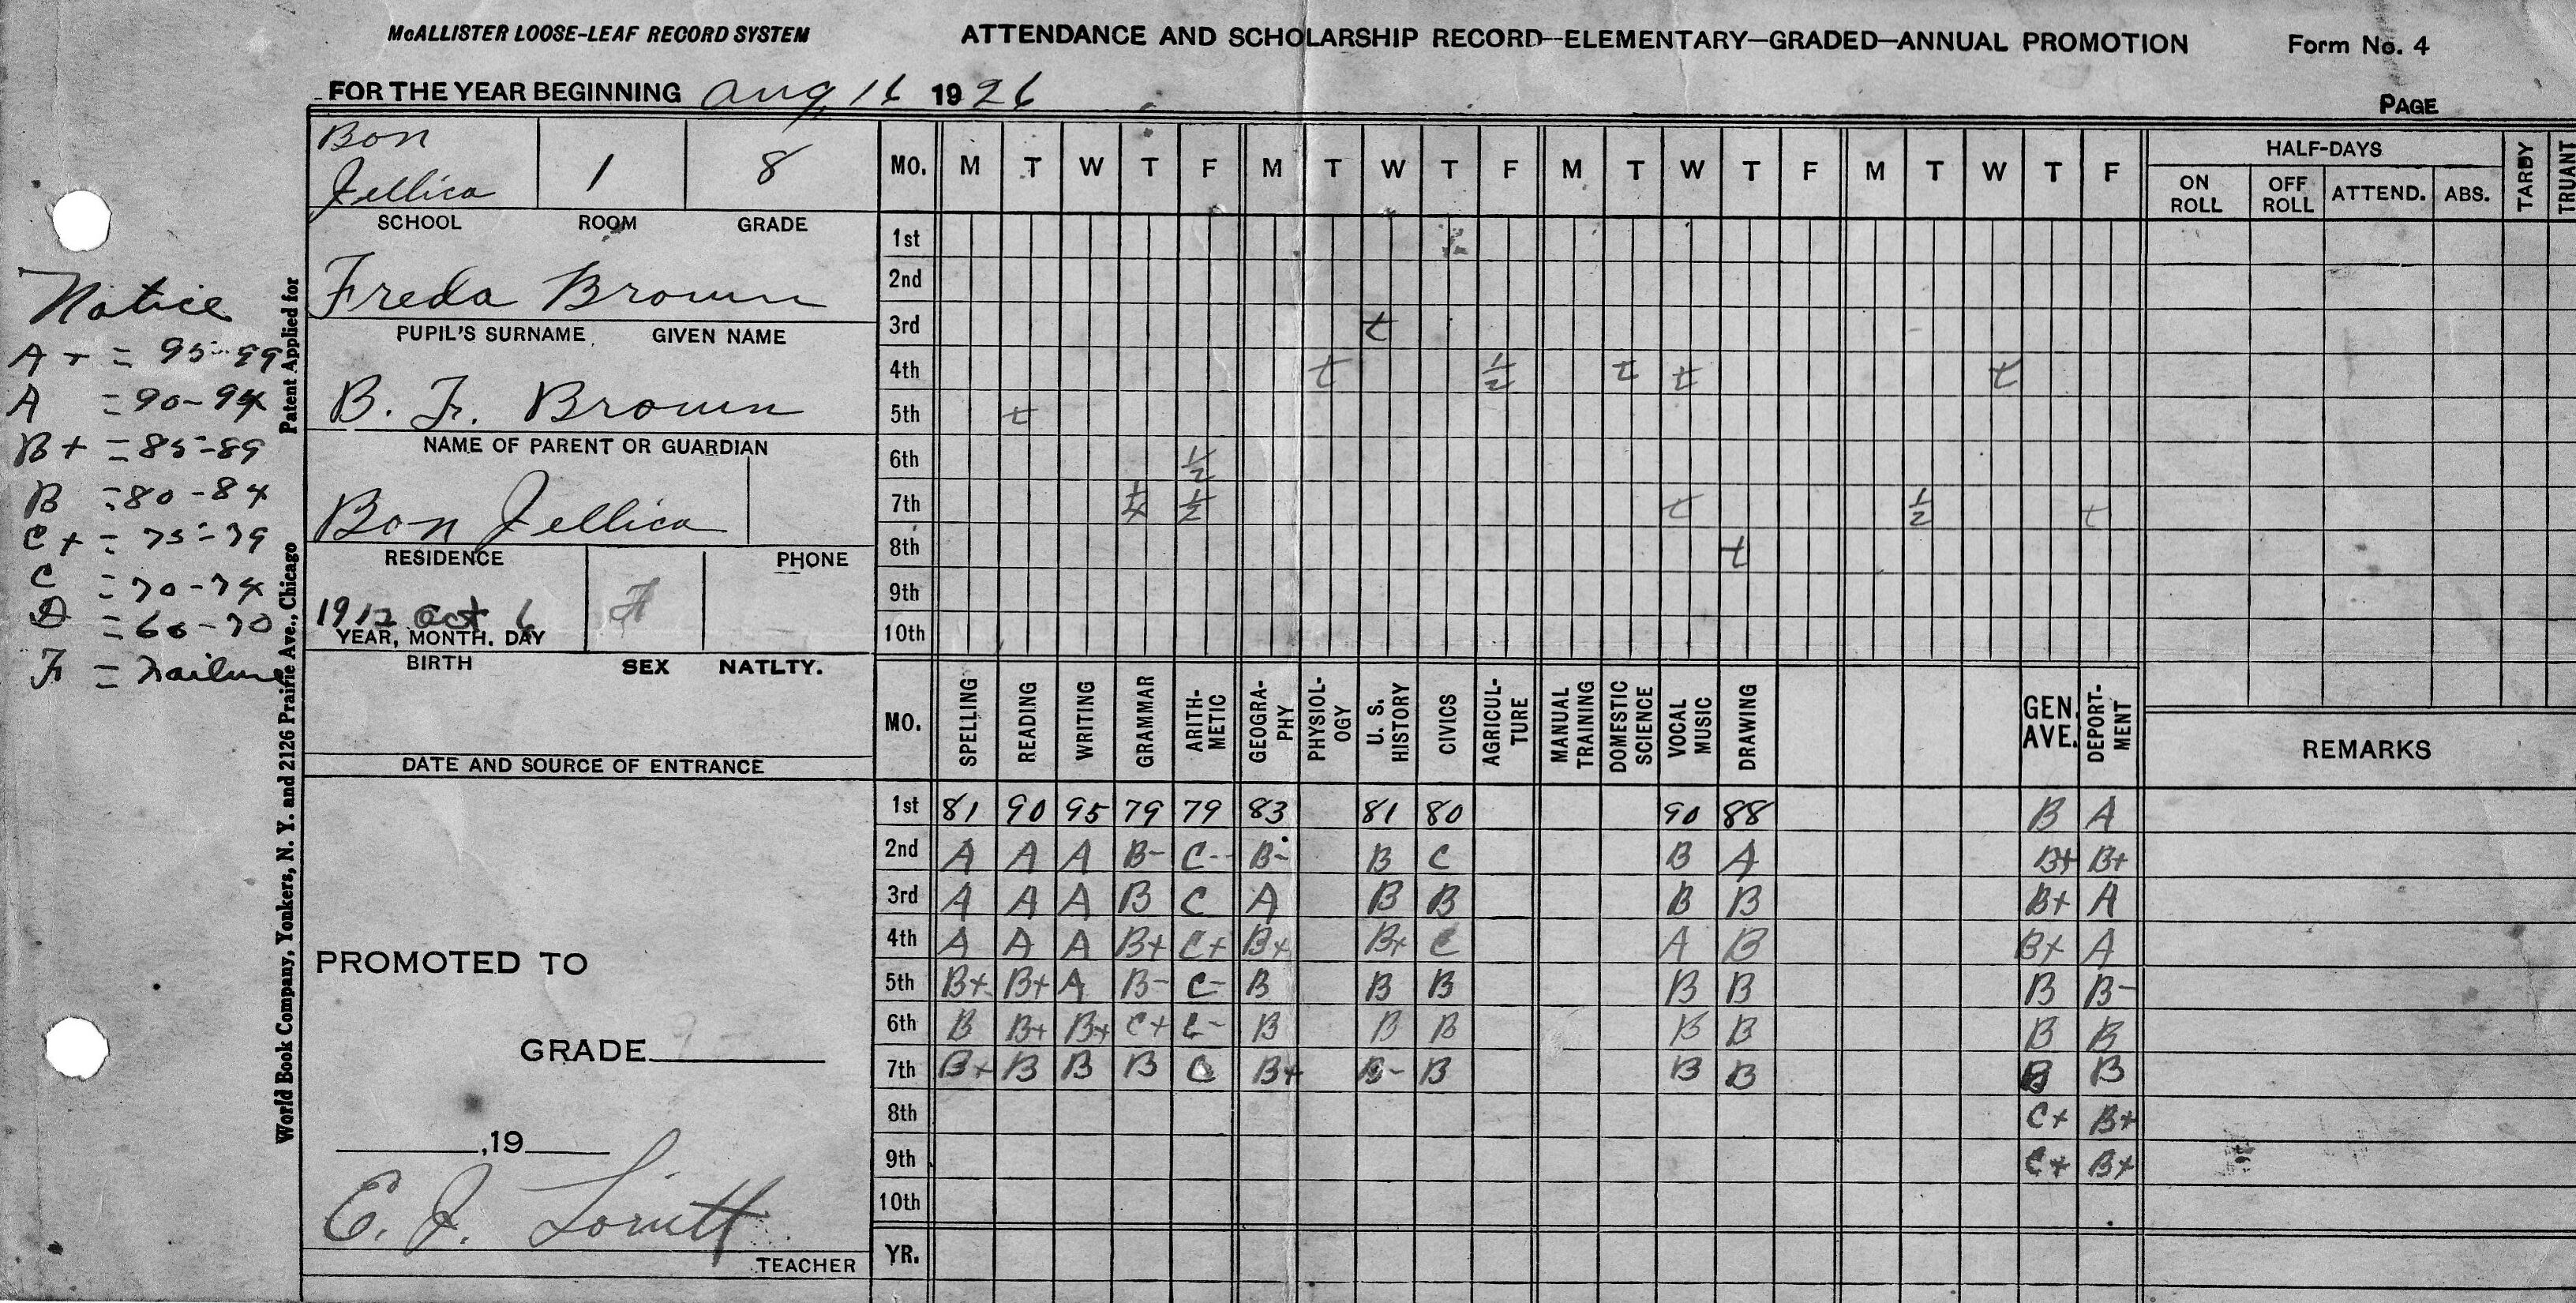 McALLISTER LOOSE-LEAF RECORD SYSTEM ATTENDANCE AND SCHOLARSHIP RECORD—ELEMENTARY—GRADED—ANNUAL PROMOTION Form No. 4
FOR THE YEAR BEGINNING Aug 16 1926
PAGE
Bon Jellico 1 8
SCHOOL ROOM GRADE
Freda Brown
PUPIL'S SURNAME GIVEN NAME
B. F. Brown
NAME OF PARENT OR GUARDIAN
Bon Jellico
RESIDENCE PHONE
1912 Oct 6 F
YEAR, MONTH. DAY
BIRTH SEX NATLTY.
DATE AND SOURCE OF ENTRANCE
PROMOTED TO
GRADE
,19
E. J.
TEACHER
Notice
A + = 95-99
A = 90-94
B+ = 85-89
B = 80-84
C + = 75-79
C = 70-74
D = 60-70
F = Failure
Patent Applied for
World Book Company, Yonkers, N. Y. and 2126 Prairie Ave., Chicago
MO. M T W T F M T W T F M T W T F M T W T F
HALF-DAYS
ON ROLL OFF ROLL ATTEND. ABS. TARDY TRUANT
1st
2nd
3rd t
4th t ½ t t t
5th t
6th ½
7th ½ t ½ t
8th t
9th
10th
MO. SPELLING READING WRITING GRAMMAR ARITH-METIC GEOGRA-PHY PHYSIOL-OGY U. S. HISTORY CIVICS AGRICUL-TURE MANUAL TRAINING DOMESTIC SCIENCE VOCAL MUSIC DRAWING GEN. AVE. DEPORT-MENT REMARKS
1st 81 90 95 79 79 83 81 80 90 88 B A
2nd A A A B- C- B- B C B A B+ B+
3rd A A A B C A B B B B B+ A
4th A A A B+ C+ B+ B+ C A B B+ A
5th B+ B+ A B- C- B B B B B B B-
6th B B+ B+ C+ C- B B B B B B B
7th B+ B B B C B+ B- B B B B B
8th C+ B+
9th C+ B+
10th
YR.